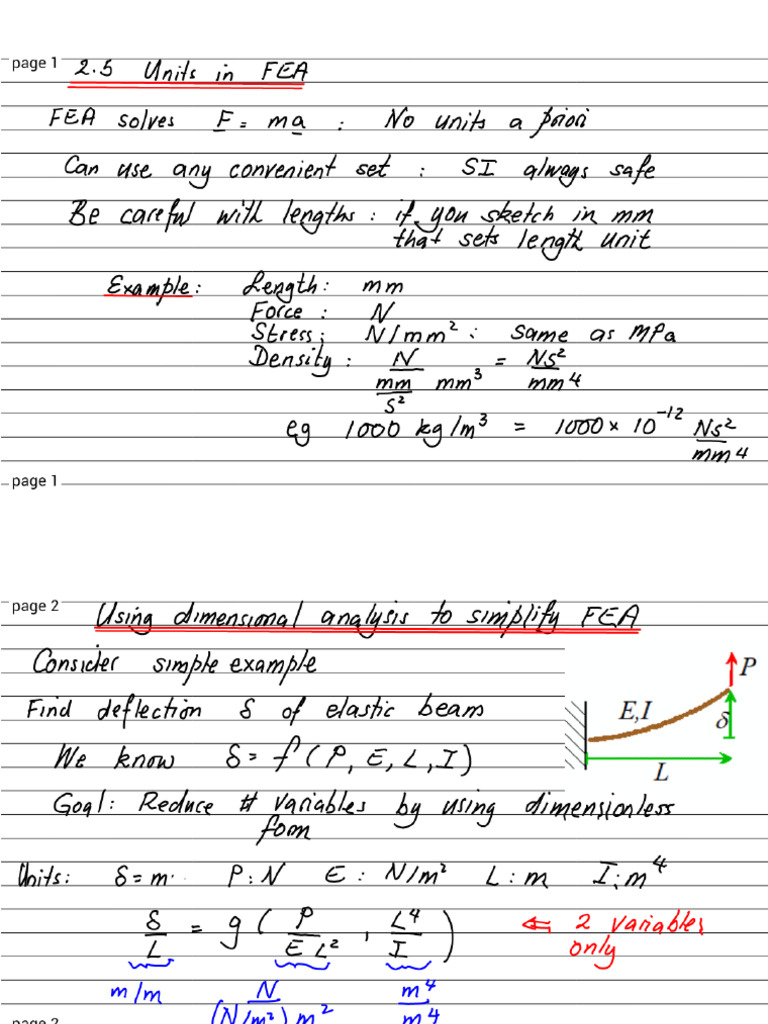 page 1
2.5 Units in FEA
FEA solves F = ma : No units a priori
Can use any convenient set : SI always safe
Be careful with lengths : if you sketch in mm
that sets length unit
Example: Length: mm
Force : N
Stress: N/mm² : same as MPa
Density : N / (mm/s² mm³) = Ns²/mm4
eg 1000 kg/m³ = 1000 × 10⁻¹² Ns²/mm4
page 1
page 2
Using dimensional analysis to simplify FEA
Consider simple example
P
Find deflection δ of elastic beam
E,I
δ
We know δ = f(P, E, L, I)
L
Goal: Reduce # variables by using dimensionless
form
Units: δ=m. P:N E: N/m² L:m I:m⁴
δ/L = g( P/EL², L⁴/I ) ⇐ 2 variables
only
m/m N/(N/m²)m² m⁴/m⁴
page 2